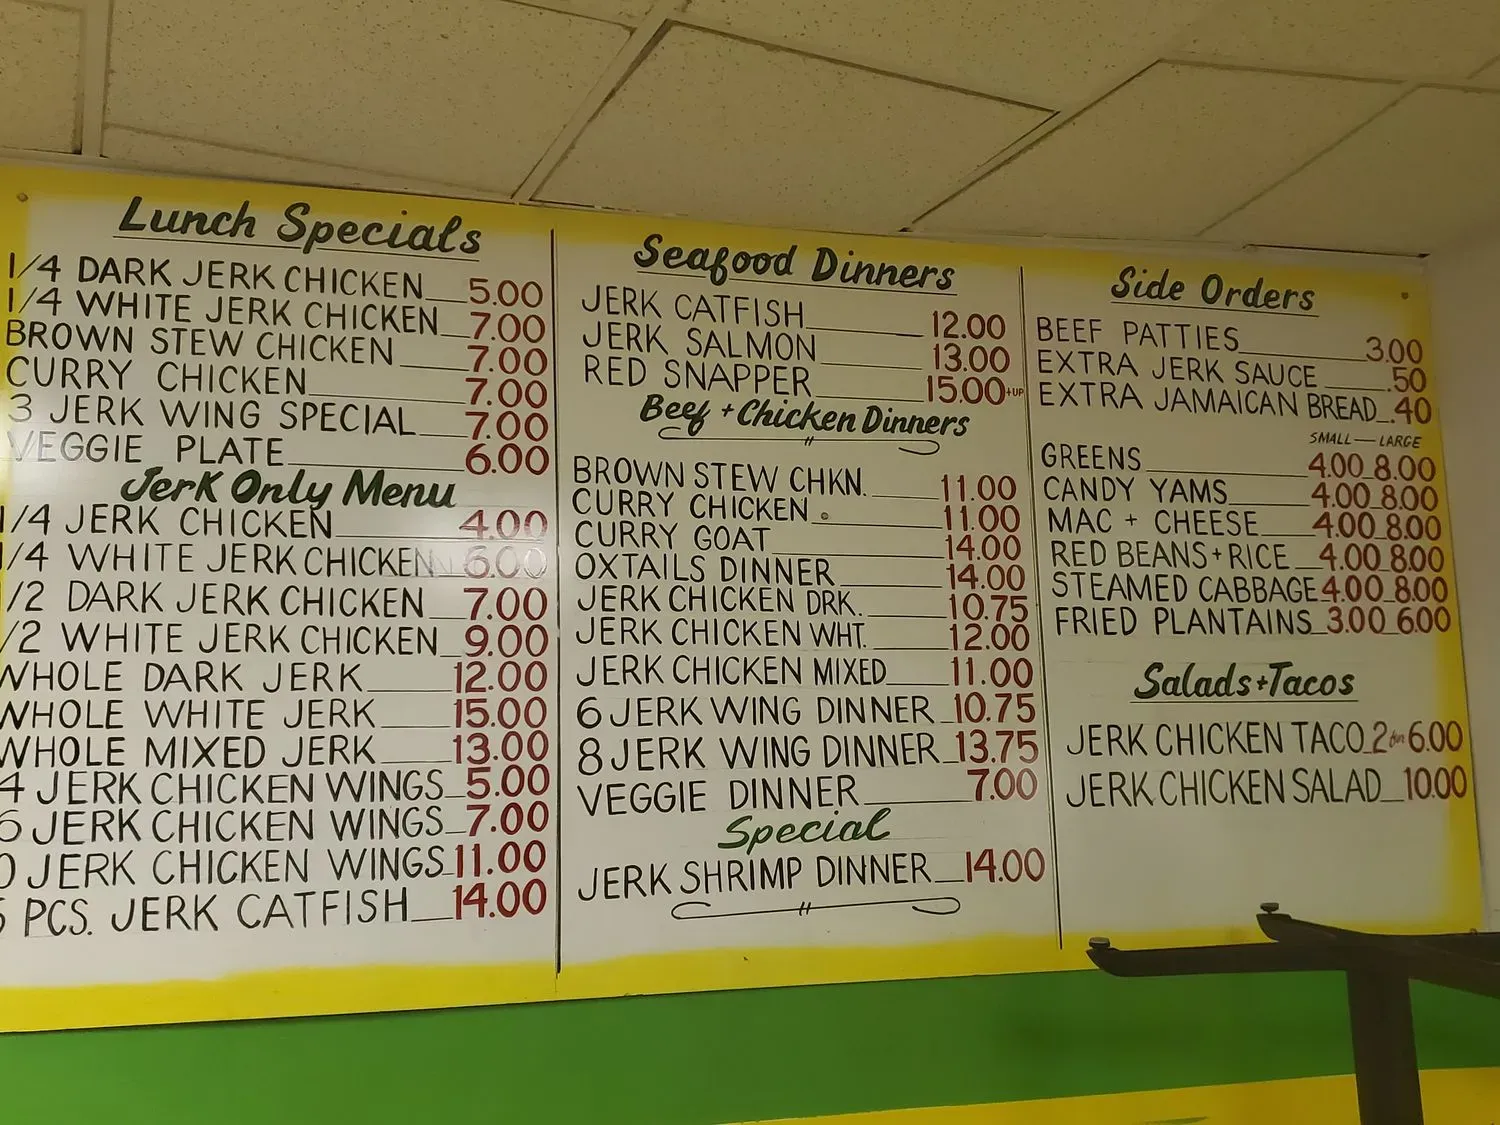 Lunch Specials
1/4 DARK JERK CHICKEN 5.00
1/4 WHITE JERK CHICKEN 7.00
BROWN STEW CHICKEN 7.00
CURRY CHICKEN 7.00
3 JERK WING SPECIAL 7.00
VEGGIE PLATE 6.00
Jerk Only Menu
1/4 JERK CHICKEN 4.00
1/4 WHITE JERK CHICKEN 6.00
/2 DARK JERK CHICKEN 7.00
/2 WHITE JERK CHICKEN 9.00
WHOLE DARK JERK 12.00
WHOLE WHITE JERK 15.00
WHOLE MIXED JERK 13.00
4 JERK CHICKEN WINGS 5.00
6 JERK CHICKEN WINGS 7.00
0 JERK CHICKEN WINGS 11.00
PCS. JERK CATFISH 14.00
Seafood Dinners
JERK CATFISH 12.00
JERK SALMON 13.00
RED SNAPPER 15.00 +UP
Beef + Chicken Dinners
BROWN STEW CHKN. 11.00
CURRY CHICKEN 11.00
CURRY GOAT 14.00
OXTAILS DINNER 14.00
JERK CHICKEN DRK. 10.75
JERK CHICKEN WHT. 12.00
JERK CHICKEN MIXED 11.00
6 JERK WING DINNER 10.75
8 JERK WING DINNER 13.75
VEGGIE DINNER 7.00
Special
JERK SHRIMP DINNER 14.00
Side Orders
BEEF PATTIES 3.00
EXTRA JERK SAUCE .50
EXTRA JAMAICAN BREAD .40
SMALL — LARGE
GREENS 4.00 8.00
CANDY YAMS 4.00 8.00
MAC + CHEESE 4.00 8.00
RED BEANS + RICE 4.00 8.00
STEAMED CABBAGE 4.00 8.00
FRIED PLANTAINS 3.00 6.00
Salads + Tacos
JERK CHICKEN TACO 2 for 6.00
JERK CHICKEN SALAD 10.00